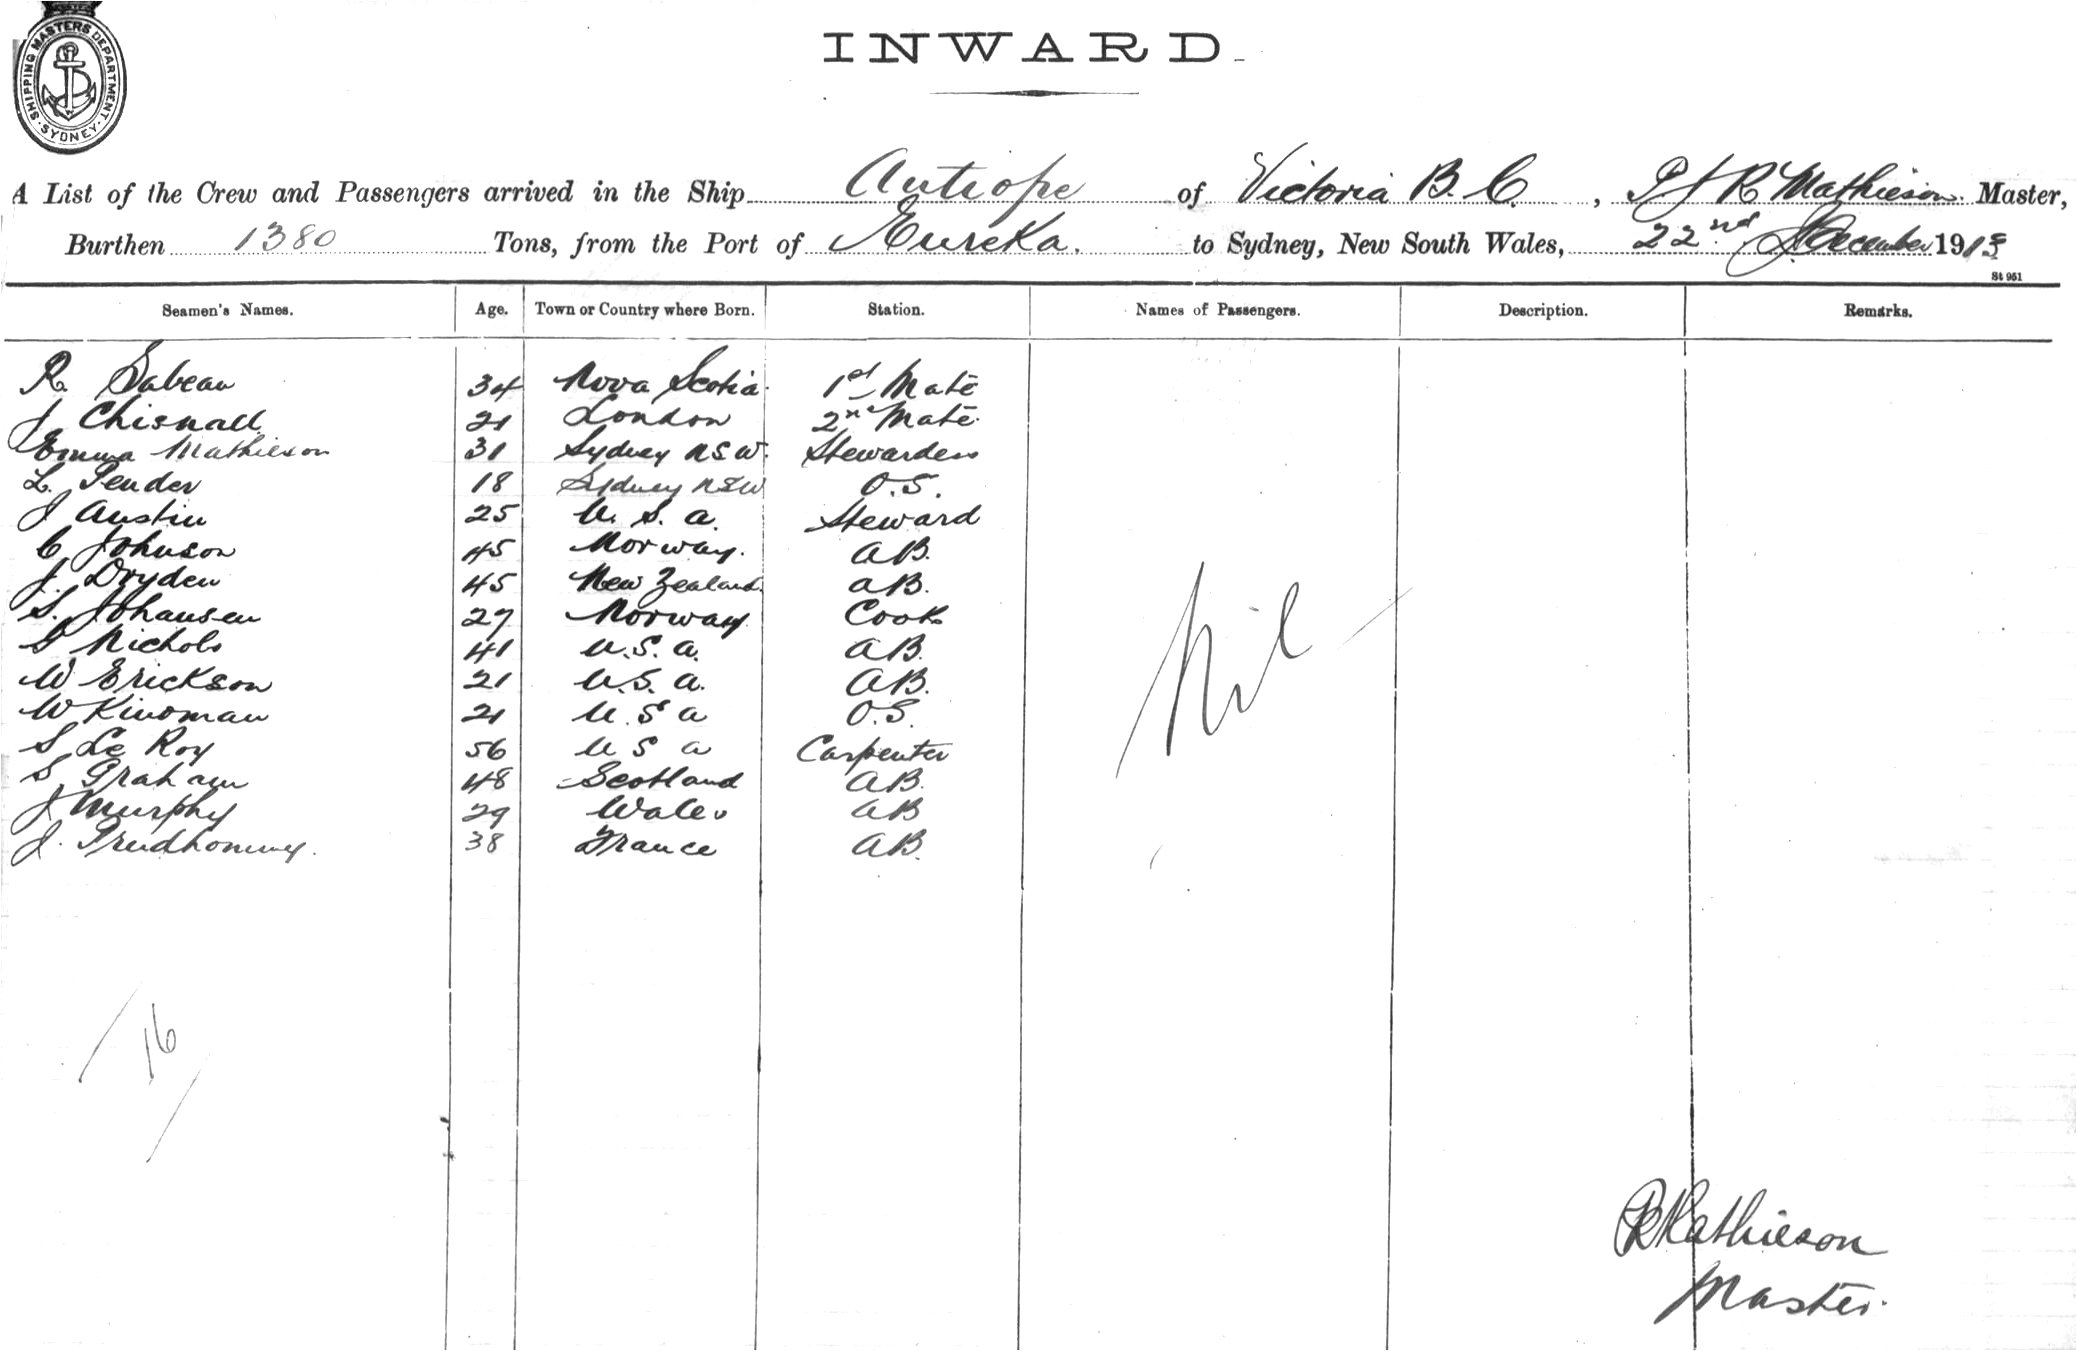 SHIPPING MASTERS DEPARTMENT. SYDNEY.
INWARD
A List of the Crew and Passengers arrived in the Ship Antiope of Victoria B.C. , P J R Mathieson Master,
Burthen 1380 Tons, from the Port of Eureka. to Sydney, New South Wales, 22nd December 1915
St 951
Seamen's Names. Age. Town or Country where Born. Station. Names of Passengers. Description. Remarks.
R Sabean 34 Nova Scotia 1st Mate
J Chisnall 21 London 2nd Mate
Emma Mathieson 31 Sydney NSW. Stewardess
L. Pender 18 Sydney NSW O.S.
J Austin 25 U. S. A. Steward
C Johnson 45 Norway. AB.
J. Dryden 45 New Zealand AB.
S. Johansen 27 Norway Cook
S Nichols 41 U.S.A. AB.
W Erickson 21 U.S.A. AB.
W Kinsman 21 U.S A O.S.
S Le Roy 56 U S A Carpenter
S Graham 48 Scotland AB.
J Murphy 29 Wales AB
J. Prudhommy. 38 France AB.
Nil
16
Mathieson
Master.